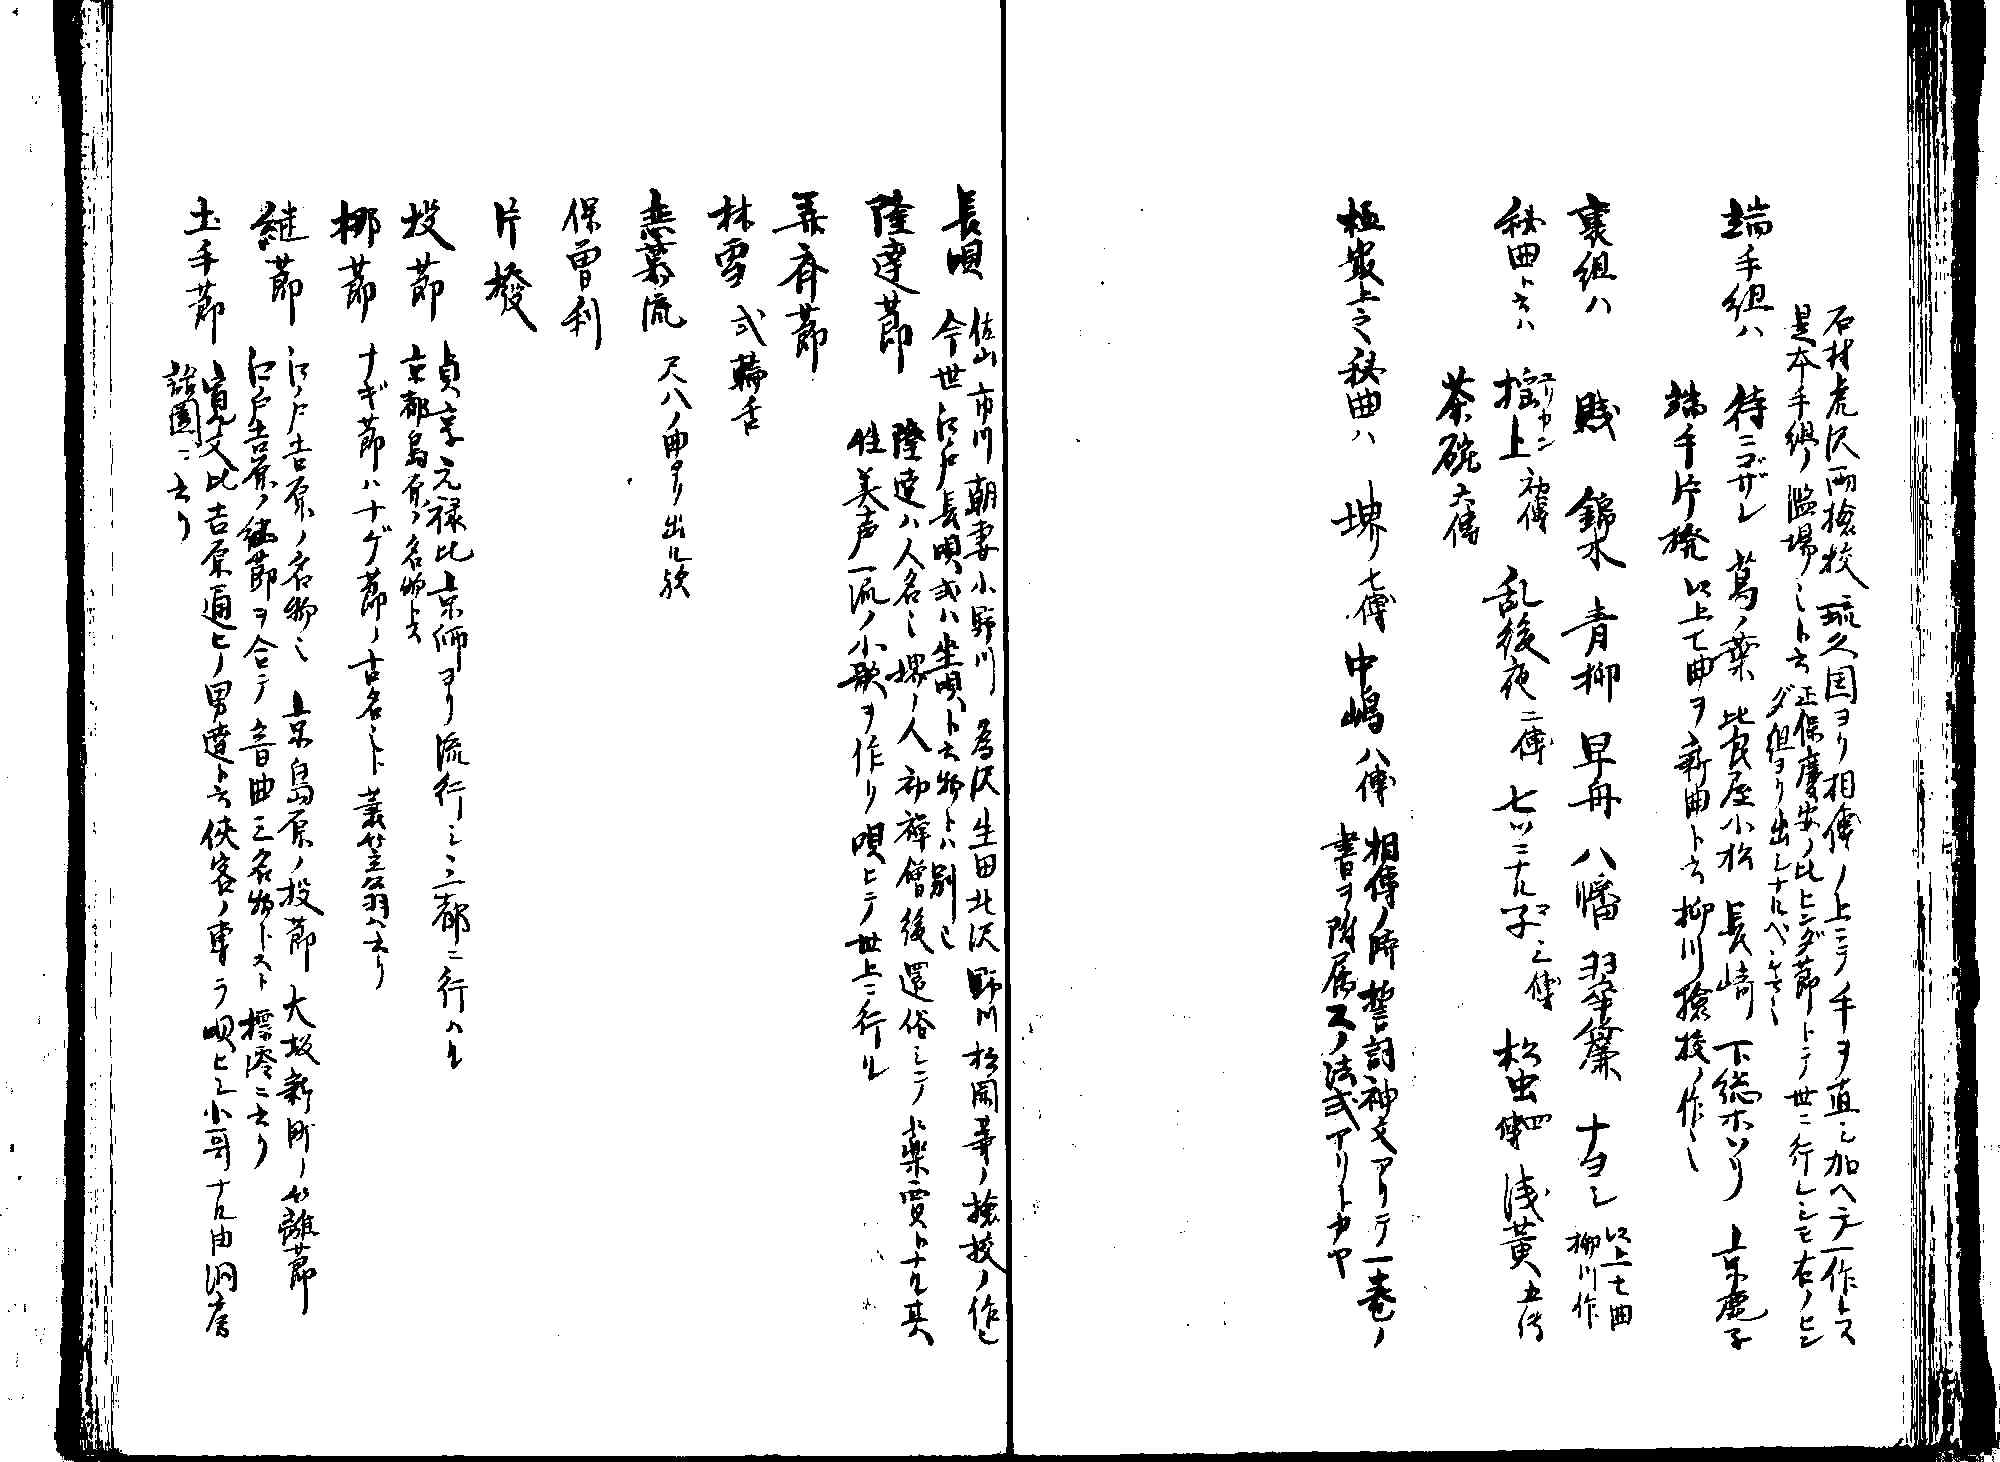 石村虎沢両撿校琉久国ヨリ相傳ノ上ニテ手ヲ直シ加ヘテ一作トス
是本手組ノ濫場也ト云正保慶安ノ比ヒンダ節トテ世ニ行レシモ右ノヒン
ダ組ヨリ出シナルベシト云々
端手組ハ 待ニゴザレ 葛ノ葉 比良屋小松 長崎 下総ホソリ 京鹿子
端手片撥 以上七曲ヲ新曲ト云柳川撿校ノ作也
裏組ハ 賎 錦木 青柳 早舟 八幡 翠簾 ナヨシ 以上七曲
柳川作
秘曲ト云ハ 揺上 初傳 乱後夜 二傳 七ツニナル子 三傳 松虫 四傳 浅黄 五傳
ユリカン
茶碗 六傳
極最上之秘曲ハ 堺 七傳 中嶋 八傳 相傳ノ時誓詞神文アリテ一巻ノ
書ヲ附属スノ法式アリトカヤ
長唄 佐山 市川 朝妻 小野川 為沢 生田 北沢 野川 松岡等ノ撿校ノ作也
今世江戸長唄或ハ坐唄ト云物トハ別也
隆達節 隆達ハ人名也堺ノ人初禅僧後還俗シテ売薬買トナル其
性美声一流ノ小歌ヲ作リ唄ヒテ世上ニ行ル
弄斉節
林雪 弐輪舌
恋慕流 尺八ノ曲ヨリ出ル歟
保曽利
片撥
投節 貞享元禄比京師ヨリ流行シ三都ニ行ハル
京都島原ノ名物ト云
梛節 ナギ節ハナゲ節ノ古名也ト蓑笠翁ハ云リ
継節 江戸吉原ノ名物也 京島原ノ投節 大坂新町ノ籬節
江戸吉原ノ継節ヲ合テ音曲三名物トスト 標澪ニ云リ
土手節 寛文比吉原通ヒノ男達ト云侠客ノ専ラ唄ヒシ小哥ナル由洞房
語園ニ云リ